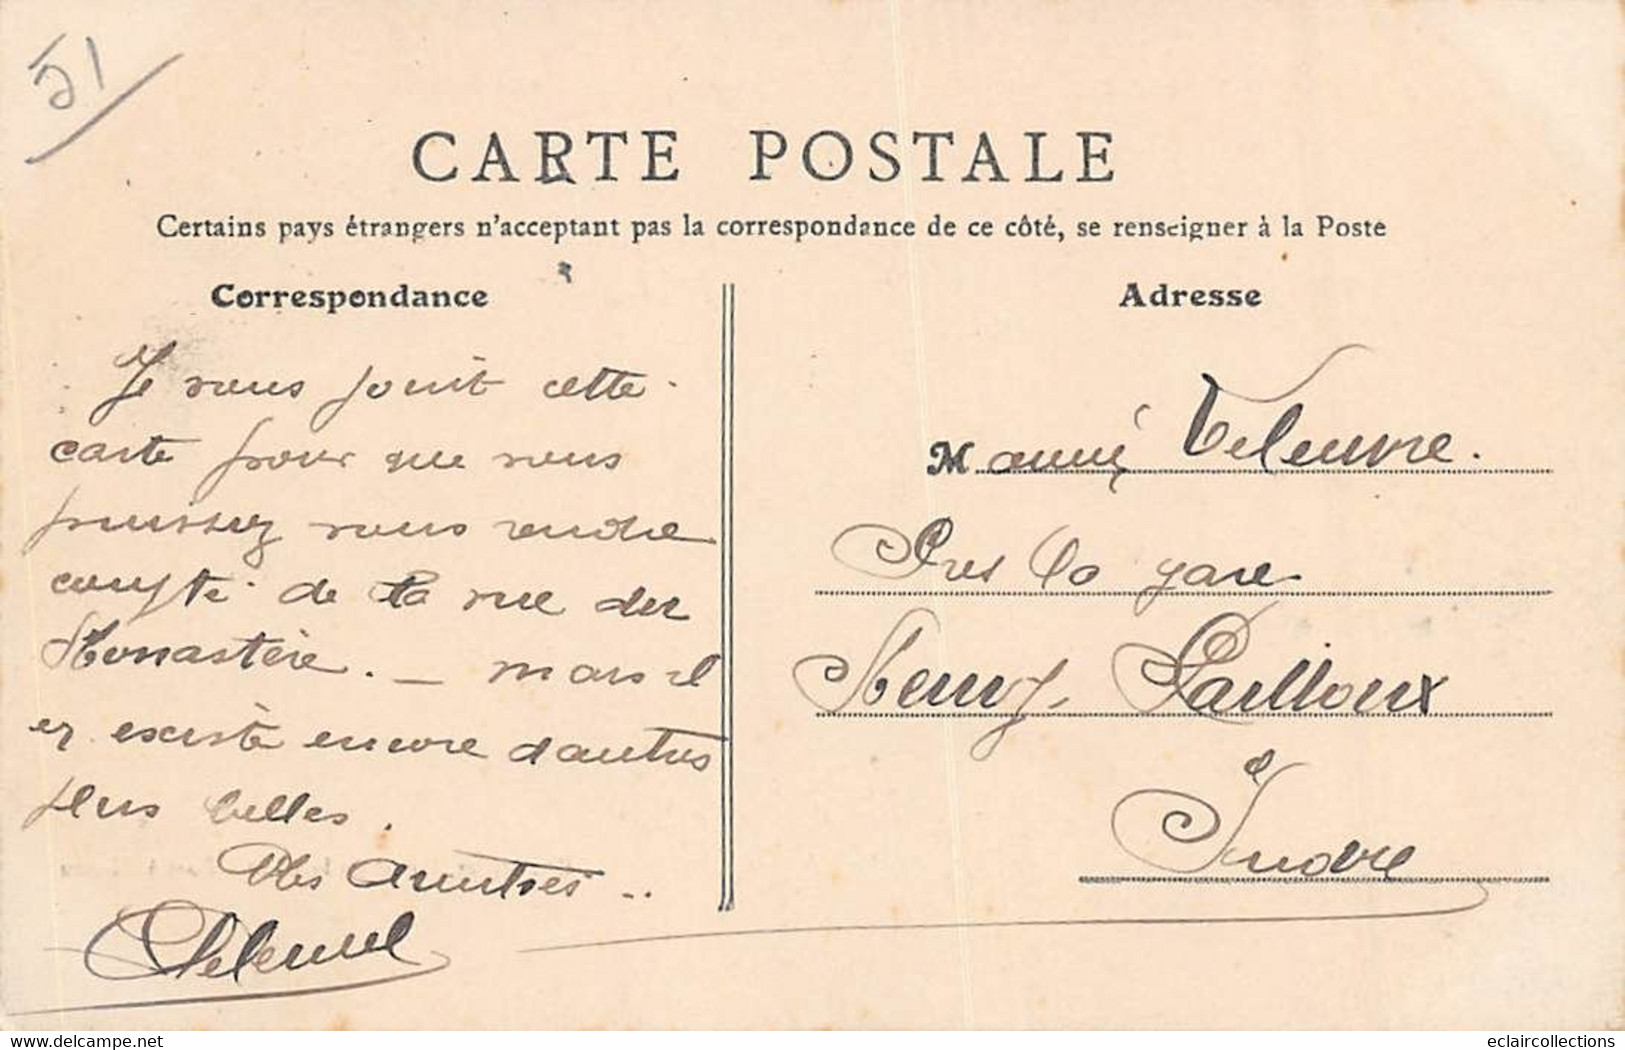 51
CARTE POSTALE
Certains pays étrangers n'acceptant pas la correspondance de ce côté, se renseigner à la Poste
Correspondance
Je vous joint cette
carte pour que vous
puissez vous rendre
compte de la rue des
Monastère. — mais il
ey existe encore d'autres
plus belles.
Mes Amitiés..
Adresse
M
Pres la gare
Neuvy-Pailloux
Indre
www.delcampe.net
eclaircollections